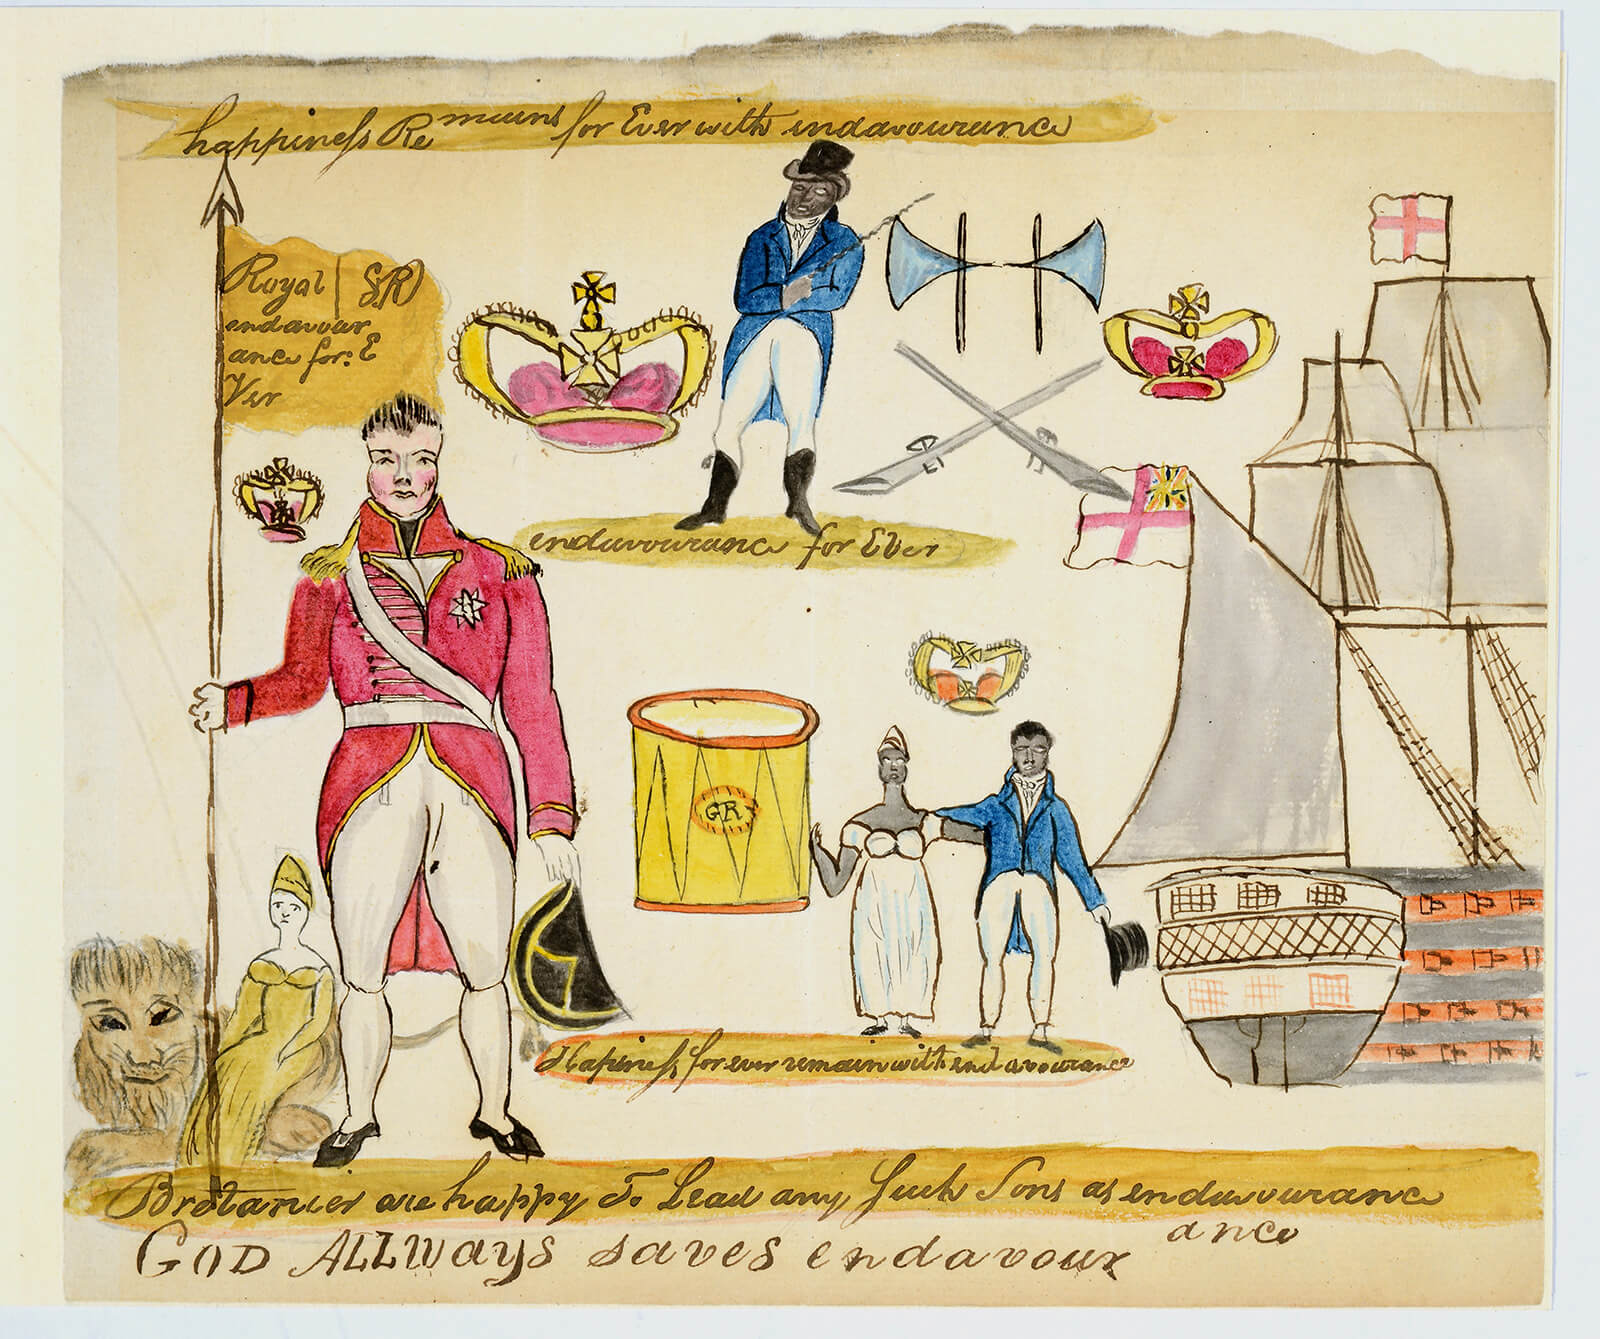 happiness Remains for Ever with endavourance
Royal | G.R
endavour
ance for: E
Ver
endavourance for Ever
GR
Hapiness for ever remain with endavourance
Britanier are happy To Lead any Such Sons as endavourance
GOD ALLways saves endavour
ance